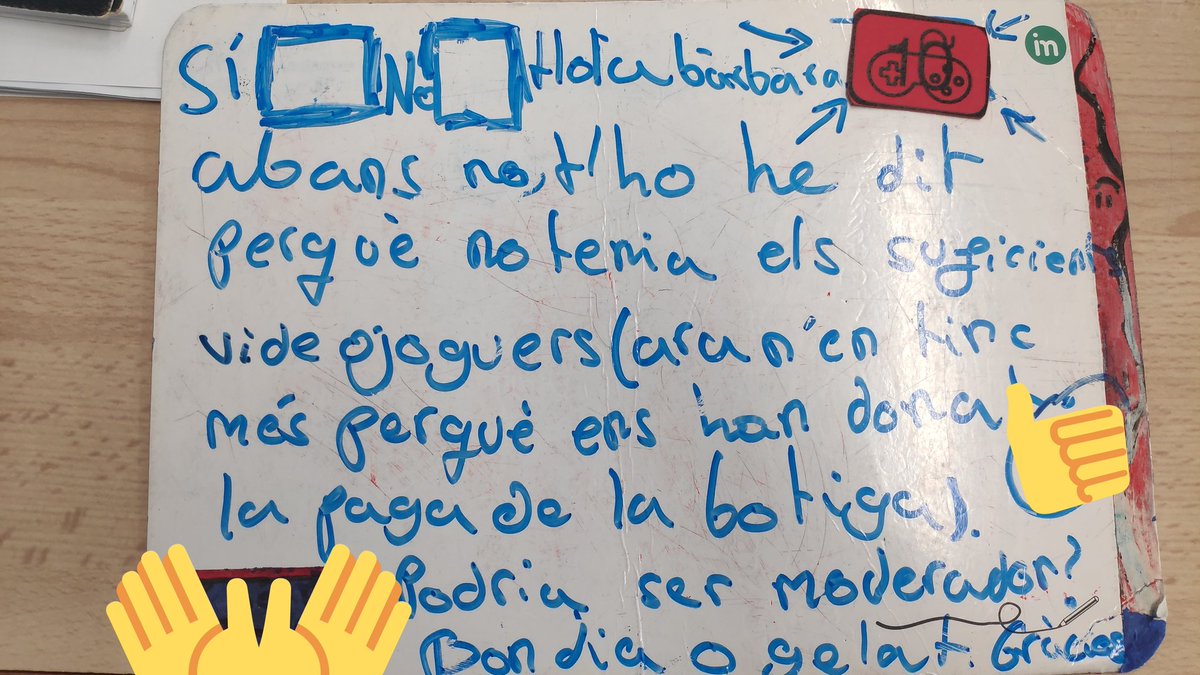 Sí No Hola bàrbara
im
abans no, t'ho he dit
perquè no tenia els suficients
videojoguers (ara n'en tinc
més perquè ens han donat
la paga de la botiga).
Podria ser moderador?
Bon dia o gelat. Gràcies